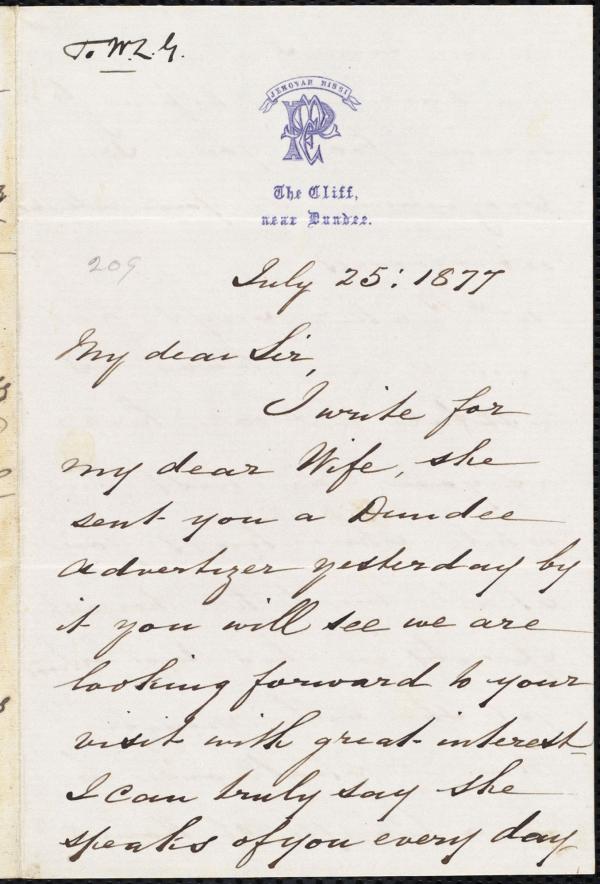 To W.L.G.
JEHOVAH NISSI
The Cliff,
near Dundee.
209
July 25: 1877
My dear Sir,
I write for
my dear Wife, she
sent you a Dundee
Advertizer yesterday by
it you will see we are
looking forward to your
visit with great interest
I can truly say she
speaks of you every day